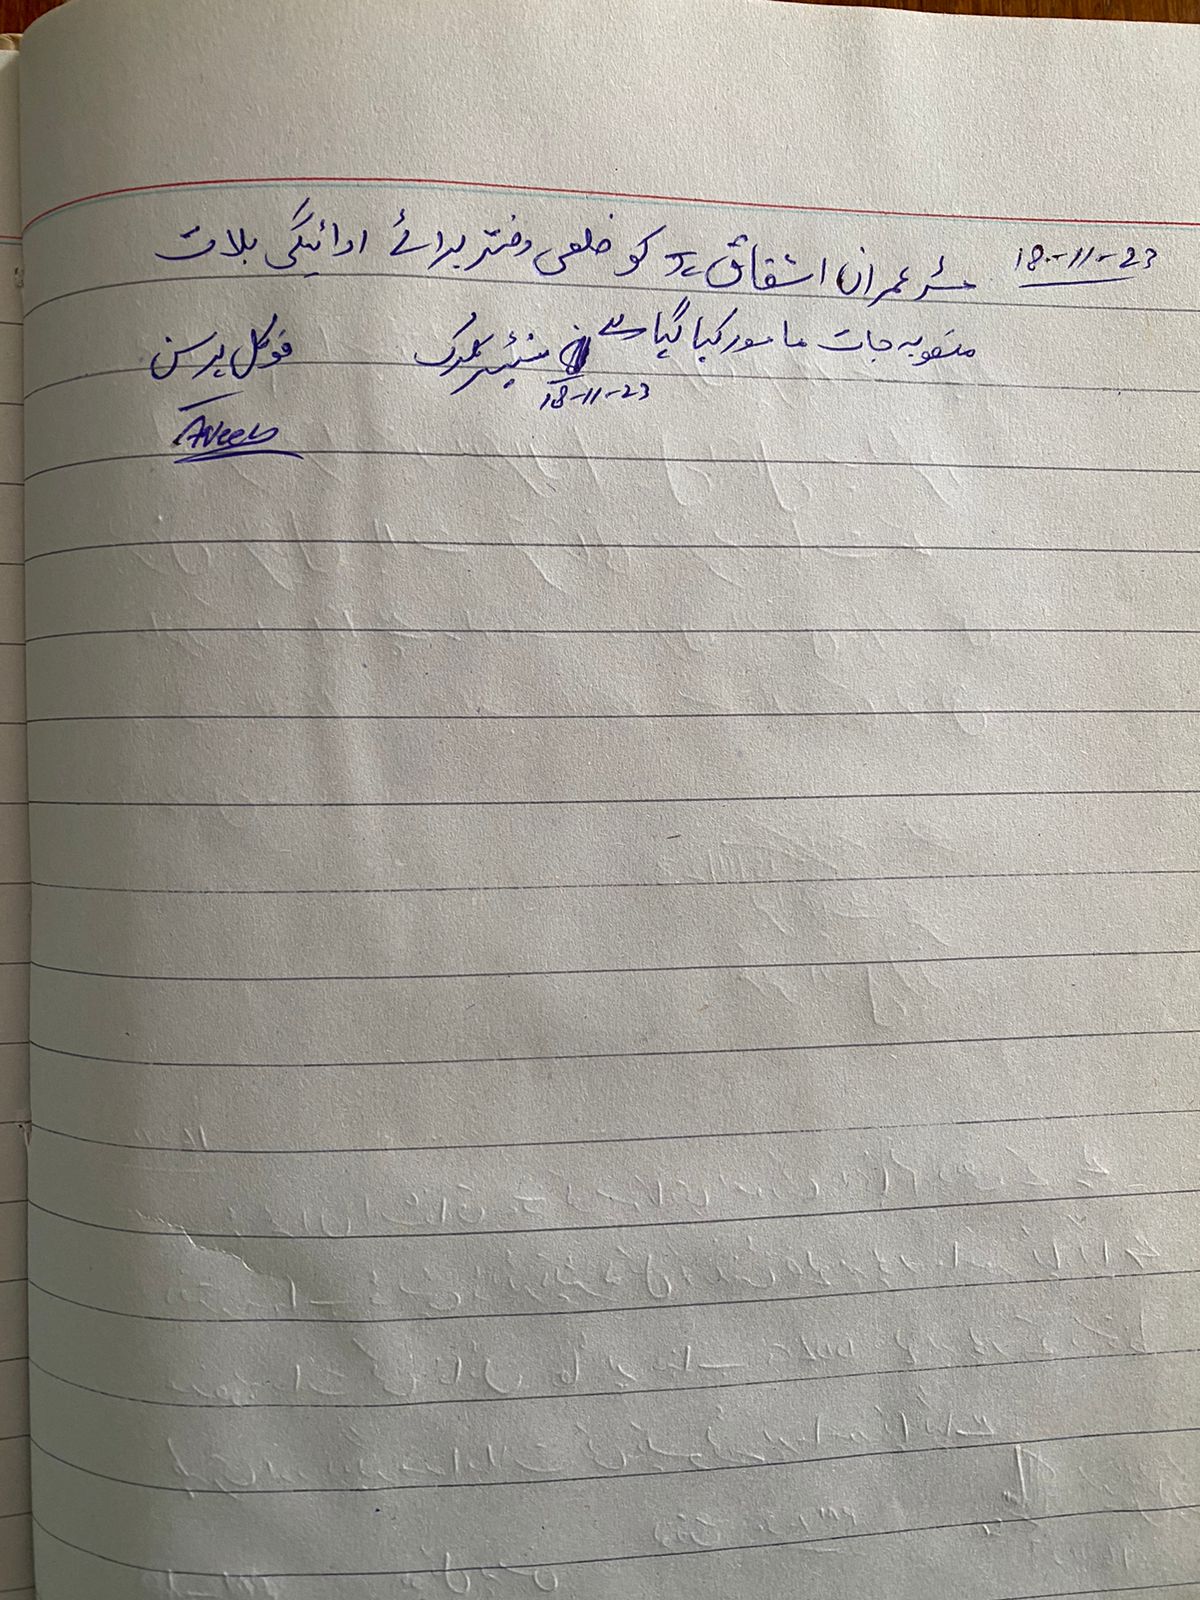 18-11-23 مسٹر عمران اشفاق JC کو ضلعی دفتر برائے ادائیگی بلات
منصوبہ جات مامور کیا گیا ہے سینئر کلرک فوکل پرسن
18-11-23